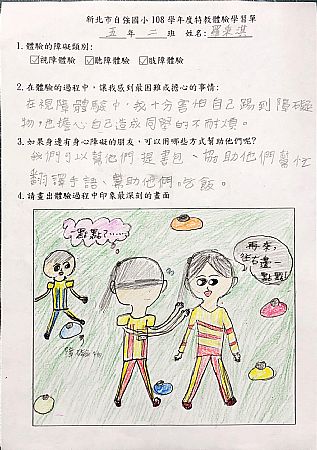 新北市自強國小108學年度特教體驗學習單
五年二班 姓名:羅秉淇
1.體驗的障礙類別:
☑視障體驗 ☑聽障體驗 ☑肢障體驗
2.在體驗的過程中,讓我感到最困難或擔心的事情:
在視障體驗中,我十分害怕自己踢到障礙
物,也擔心自己造成同學的不耐煩。
3.如果身邊有身心障礙的朋友,可以用哪些方式幫助他們呢?
我們可以幫他們提書包、協助他們幫忙
翻譯手語、幫助他們吃飯。
4.請畫出體驗過程中印象最深刻的畫面
一點點?……
再來,
往右邊一
點點!
障礙物